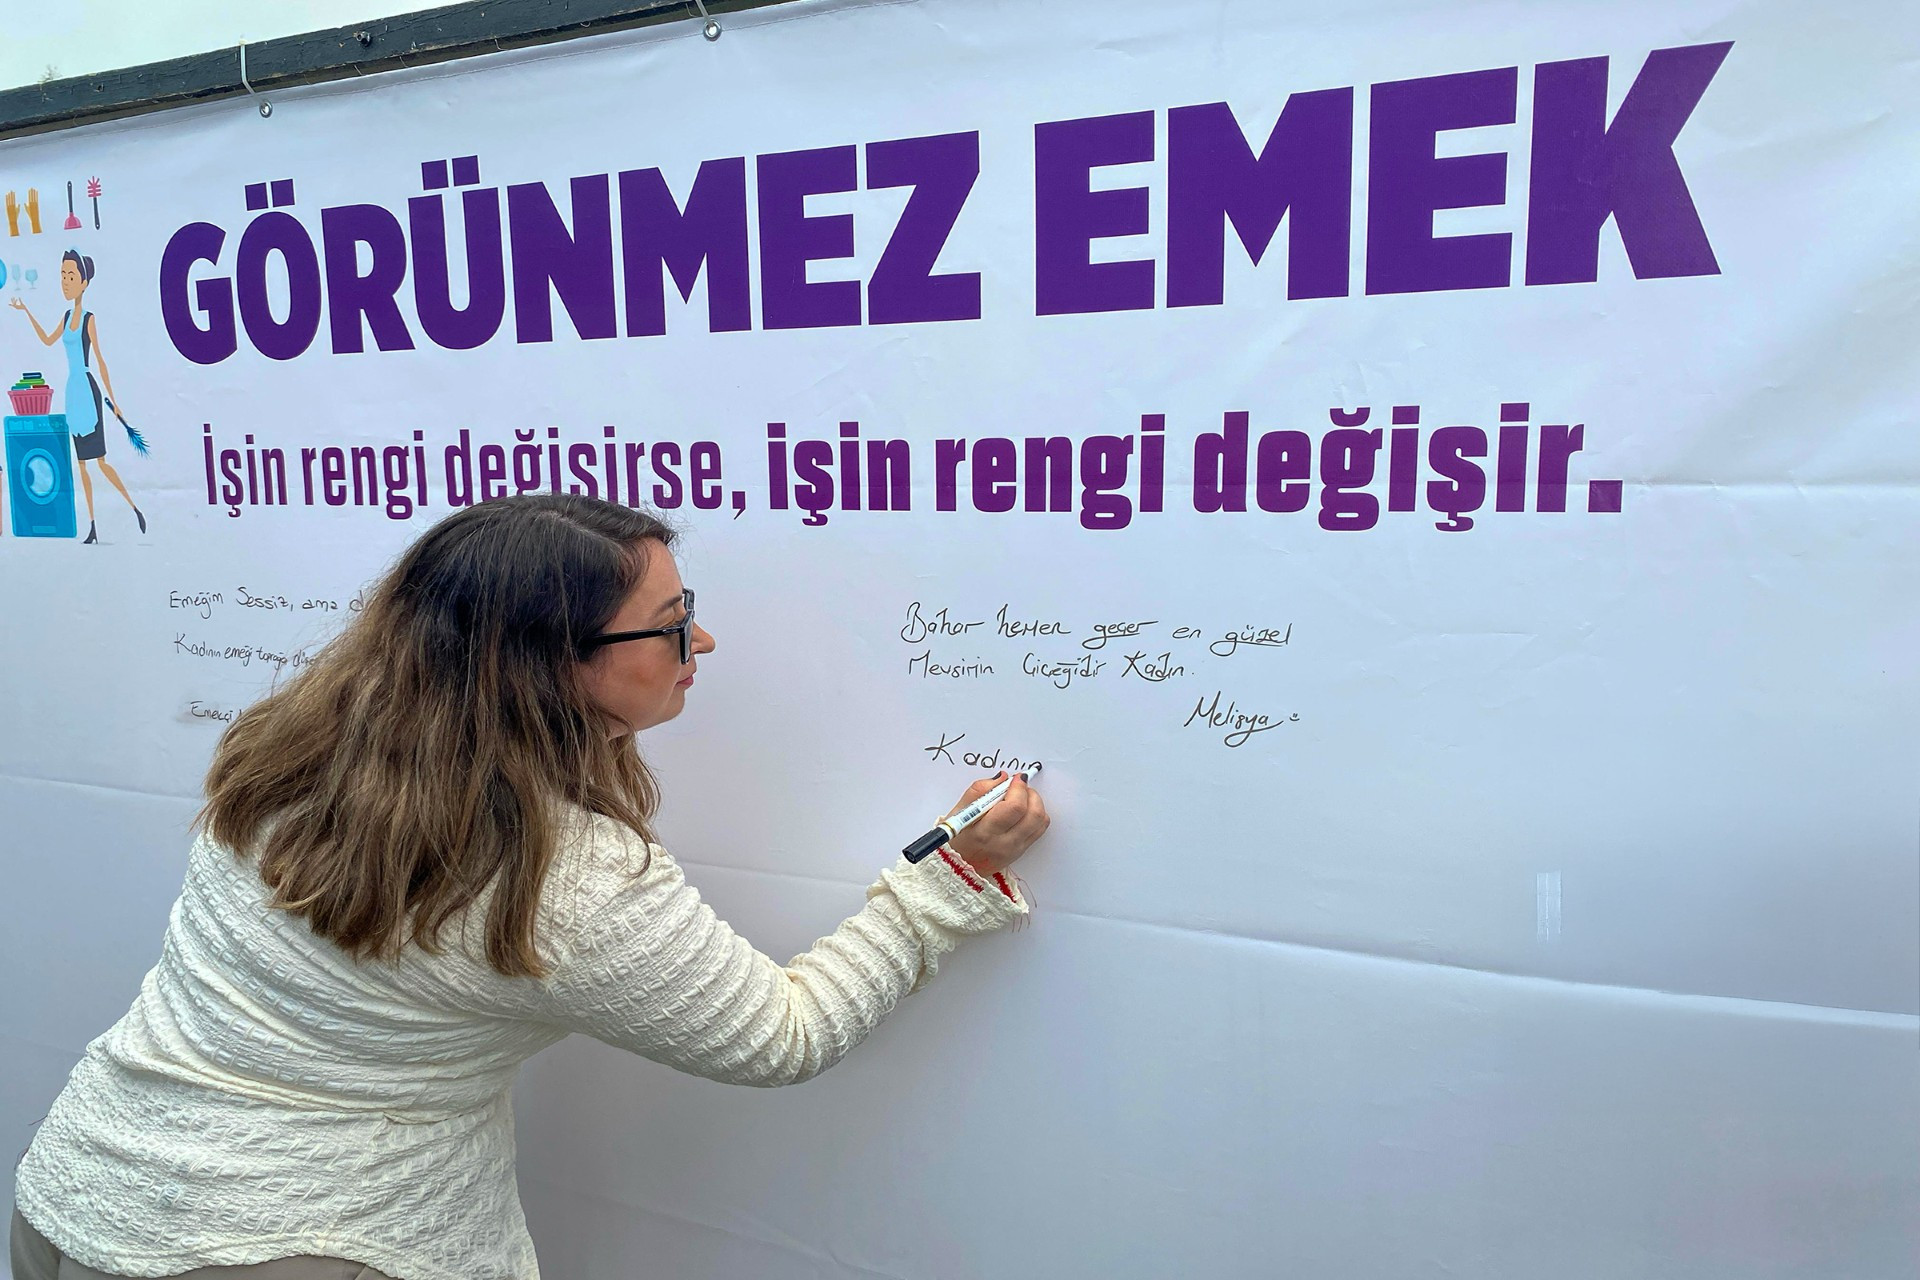 GÖRÜNMEZ EMEK
İşin rengi değişirse, işin rengi değişir.
Emeğim Sessiz, ama
Kadının emeği toprağa
Emekçi
Bahar hemen geçer en güzel
Mevsimin Çiçeğidir Kadın.
Melisya
Kadının